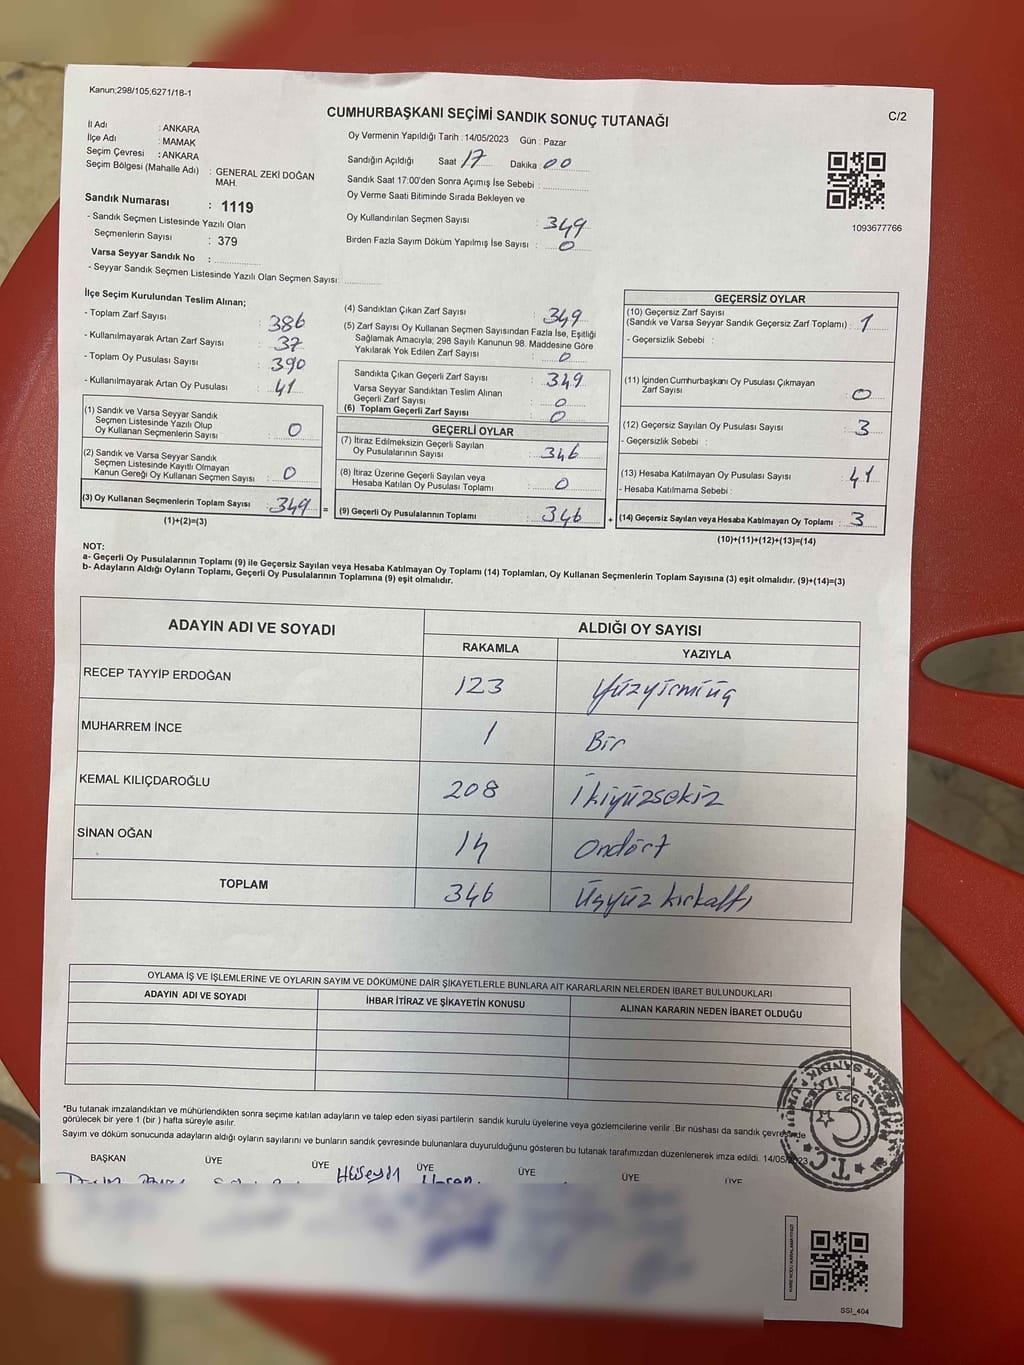 Kanun;298/105,6271/18-1
C/2
CUMHURBAŞKANI SEÇİMİ SANDIK SONUÇ TUTANAĞI
İl Adı : ANKARA
İlçe Adı : MAMAK
Seçim Çevresi : ANKARA
Seçim Bölgesi (Mahalle Adı) : GENERAL ZEKİ DOĞAN
MAH.
Sandık Numarası : 1119
- Sandık Seçmen Listesinde Yazılı Olan
Seçmenlerin Sayısı : 379
Varsa Seyyar Sandık No :
- Seyyar Sandık Seçmen Listesinde Yazılı Olan Seçmen Sayısı:
Oy Vermenin Yapıldığı Tarih : 14/05/2023 Gün : Pazar
Sandığın Açıldığı Saat 17 Dakika 00
Sandık Saat 17:00'den Sonra Açımış İse Sebebi :
Oy Verme Saati Bitiminde Sırada Bekleyen ve
Oy Kullandırılan Seçmen Sayısı : 349
Birden Fazla Sayım Döküm Yapılmış İse Sayısı : 0
1093677766
İlçe Seçim Kurulundan Teslim Alınan;
- Toplam Zarf Sayısı : 386
- Kullanılmayarak Artan Zarf Sayısı : 37
- Toplam Oy Pusulası Sayısı : 390
- Kullanılmayarak Artan Oy Pusulası : 41
(1) Sandık ve Varsa Seyyar Sandık
Seçmen Listesinde Yazılı Olup
Oy Kullanan Seçmenlerin Sayısı : 0
(2) Sandık ve Varsa Seyyar Sandık
Seçmen Listesinde Kayıtlı Olmayan
Kanun Gereği Oy Kullanan Seçmen Sayısı : 0
(3) Oy Kullanan Seçmenlerin Toplam Sayısı : 349 =
(1)+(2)=(3)
(4) Sandıktan Çıkan Zarf Sayısı : 349
(5) Zarf Sayısı Oy Kullanan Seçmen Sayısından Fazla İse, Eşitliği
Sağlamak Amacıyla; 298 Sayılı Kanunun 98. Maddesine Göre
Yakılarak Yok Edilen Zarf Sayısı : 0
Sandıkta Çıkan Geçerli Zarf Sayısı : 349
Varsa Seyyar Sandıktan Teslim Alınan
Geçerli Zarf Sayısı : 0
(6) Toplam Geçerli Zarf Sayısı : 0
GEÇERLİ OYLAR
(7) İtiraz Edilmeksizin Geçerli Sayılan
Oy Pusulalarının Sayısı : 346
(8) İtiraz Üzerine Geçerli Sayılan veya
Hesaba Katılan Oy Pusulası Toplamı : 0
(9) Geçerli Oy Pusulalarının Toplamı : 346 +
GEÇERSİZ OYLAR
(10) Geçersiz Zarf Sayısı
(Sandık ve Varsa Seyyar Sandık Geçersiz Zarf Toplamı) : 1
- Geçersizlik Sebebi :
(11) İçinden Cumhurbaşkanı Oy Pusulası Çıkmayan
Zarf Sayısı : 0
(12) Geçersiz Sayılan Oy Pusulası Sayısı : 3
- Geçersizlik Sebebi :
(13) Hesaba Katılmayan Oy Pusulası Sayısı : 41
- Hesaba Katılmama Sebebi :
(14) Geçersiz Sayılan veya Hesaba Katılmayan Oy Toplamı : 3
(10)+(11)+(12)+(13)=(14)
NOT:
a- Geçerli Oy Pusulalarının Toplamı (9) ile Geçersiz Sayılan veya Hesaba Katılmayan Oy Toplamı (14) Toplamları, Oy Kullanan Seçmenlerin Toplam Sayısına (3) eşit olmalıdır. (9)+(14)=(3)
b- Adayların Aldığı Oyların Toplamı, Geçerli Oy Pusulalarının Toplamına (9) eşit olmalıdır.
ADAYIN ADI VE SOYADI ALDIĞI OY SAYISI
RAKAMLA YAZIYLA
RECEP TAYYİP ERDOĞAN 123 Yüzyirmiüç
MUHARREM İNCE 1 Bir
KEMAL KILIÇDAROĞLU 208 İkiyüzsekiz
SİNAN OĞAN 14 Ondört
TOPLAM 346 Üçyüz kırkaltı
OYLAMA İŞ VE İŞLEMLERİNE VE OYLARIN SAYIM VE DÖKÜMÜNE DAİR ŞİKAYETLERLE BUNLARA AİT KARARLARIN NELERDEN İBARET BULUNDUKLARI
ADAYIN ADI VE SOYADI İHBAR İTİRAZ VE ŞİKAYETİN KONUSU ALINAN KARARIN NEDEN İBARET OLDUĞU
*Bu tutanak imzalandıktan ve mühürlendikten sonra seçime katılan adayların ve talep eden siyasi partilerin sandık kurulu üyelerine veya gözlemcilerine verilir .Bir nüshası da sandık çevresinde
görülecek bir yere 1 (bir ) hafta süreyle asılır.
Sayım ve döküm sonucunda adayların aldığı oyların sayılarını ve bunların sandık çevresinde bulunanlara duyurulduğunu gösteren bu tutanak tarafımızdan düzenlenerek imza edildi. 14/05/2023
BAŞKAN ÜYE ÜYE ÜYE ÜYE ÜYE ÜYE
Hüseyin
T.C.
1923
SSI_404